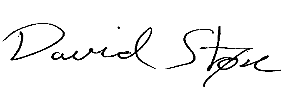 David Stone